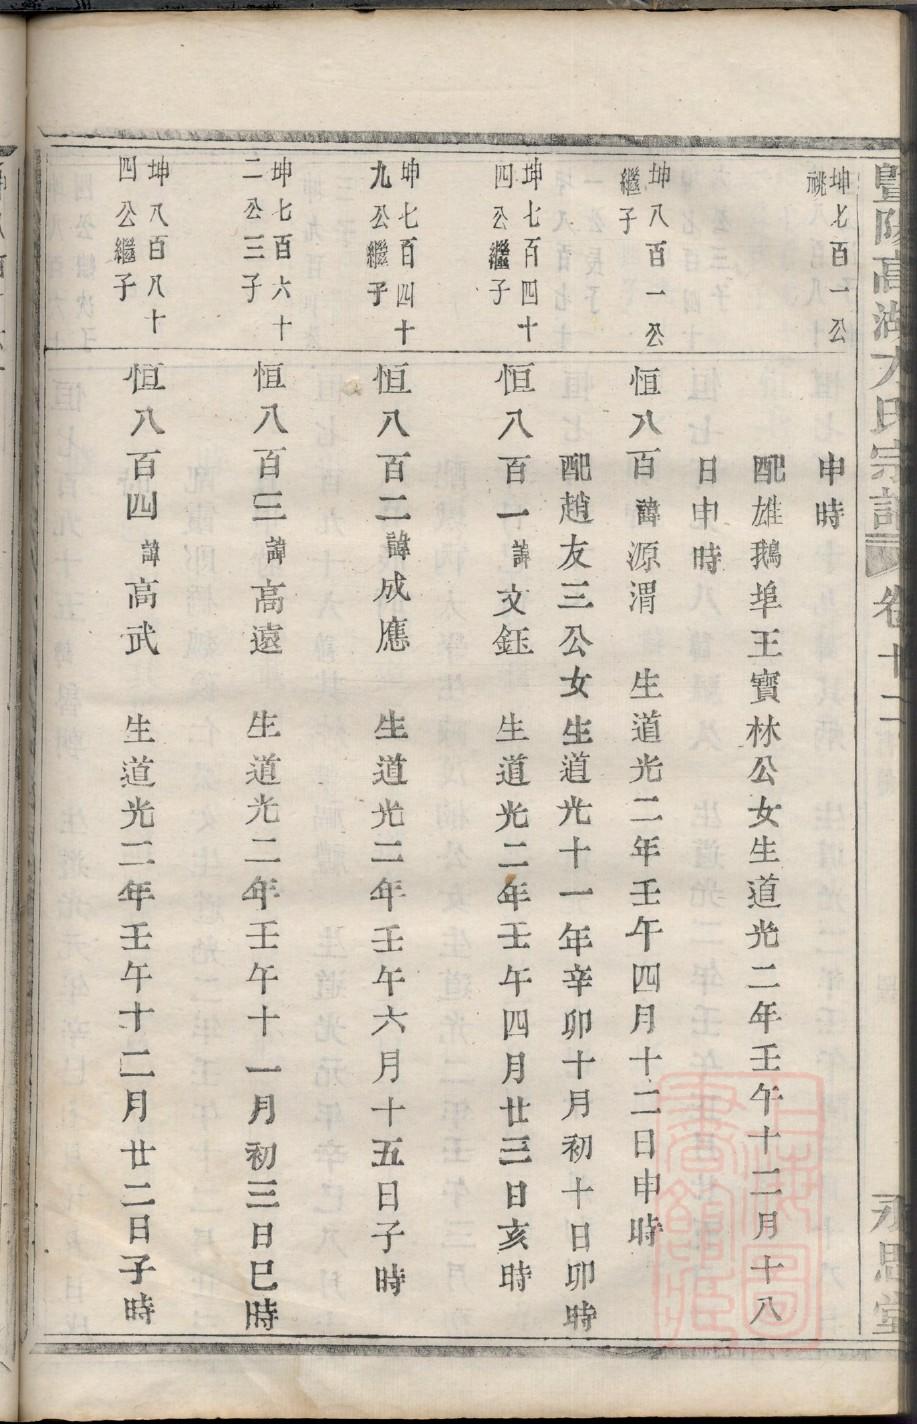 暨陽高湖方氏宗譜 卷十二 永思堂
坤七百一公
祧
申時
配雄鵝埠王寶林公女生道光二年壬午十二月十八
日申時
坤八百一公
繼子
恒八百諱源渭 生道光二年壬午四月十二日申時
配趙友三公女生道光十一年辛卯十月初十日卯時
坤七百四十
四公繼子
恒八百一諱文鈺 生道光二年壬午四月廿三日亥時
坤七百四十
九公繼子
恒八百二諱成應 生道光二年壬午六月十五日子時
坤七百六十
二公三子
恒八百三諱高遠 生道光二年壬午十一月初三日巳時
坤八百八十
四公繼子
恒八百四諱高武 生道光二年壬午十二月廿二日子時